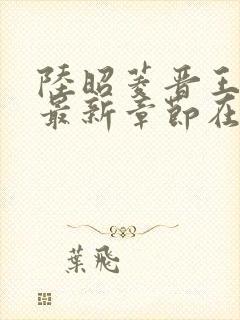 陸昭菱晉王
最新章節在
葉飛